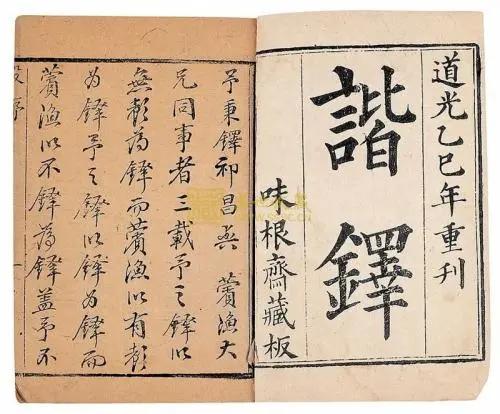 道光乙巳年重刊
諧鐸
味根齋藏板
予秉鐸祁昌與 薲漁大
兄同事者三載予之鐸以
無彰為鐸而薲漁以有彰
為鐸予之鐸以鐸為鐸而
薲漁以不鐸為鐸蓋予不